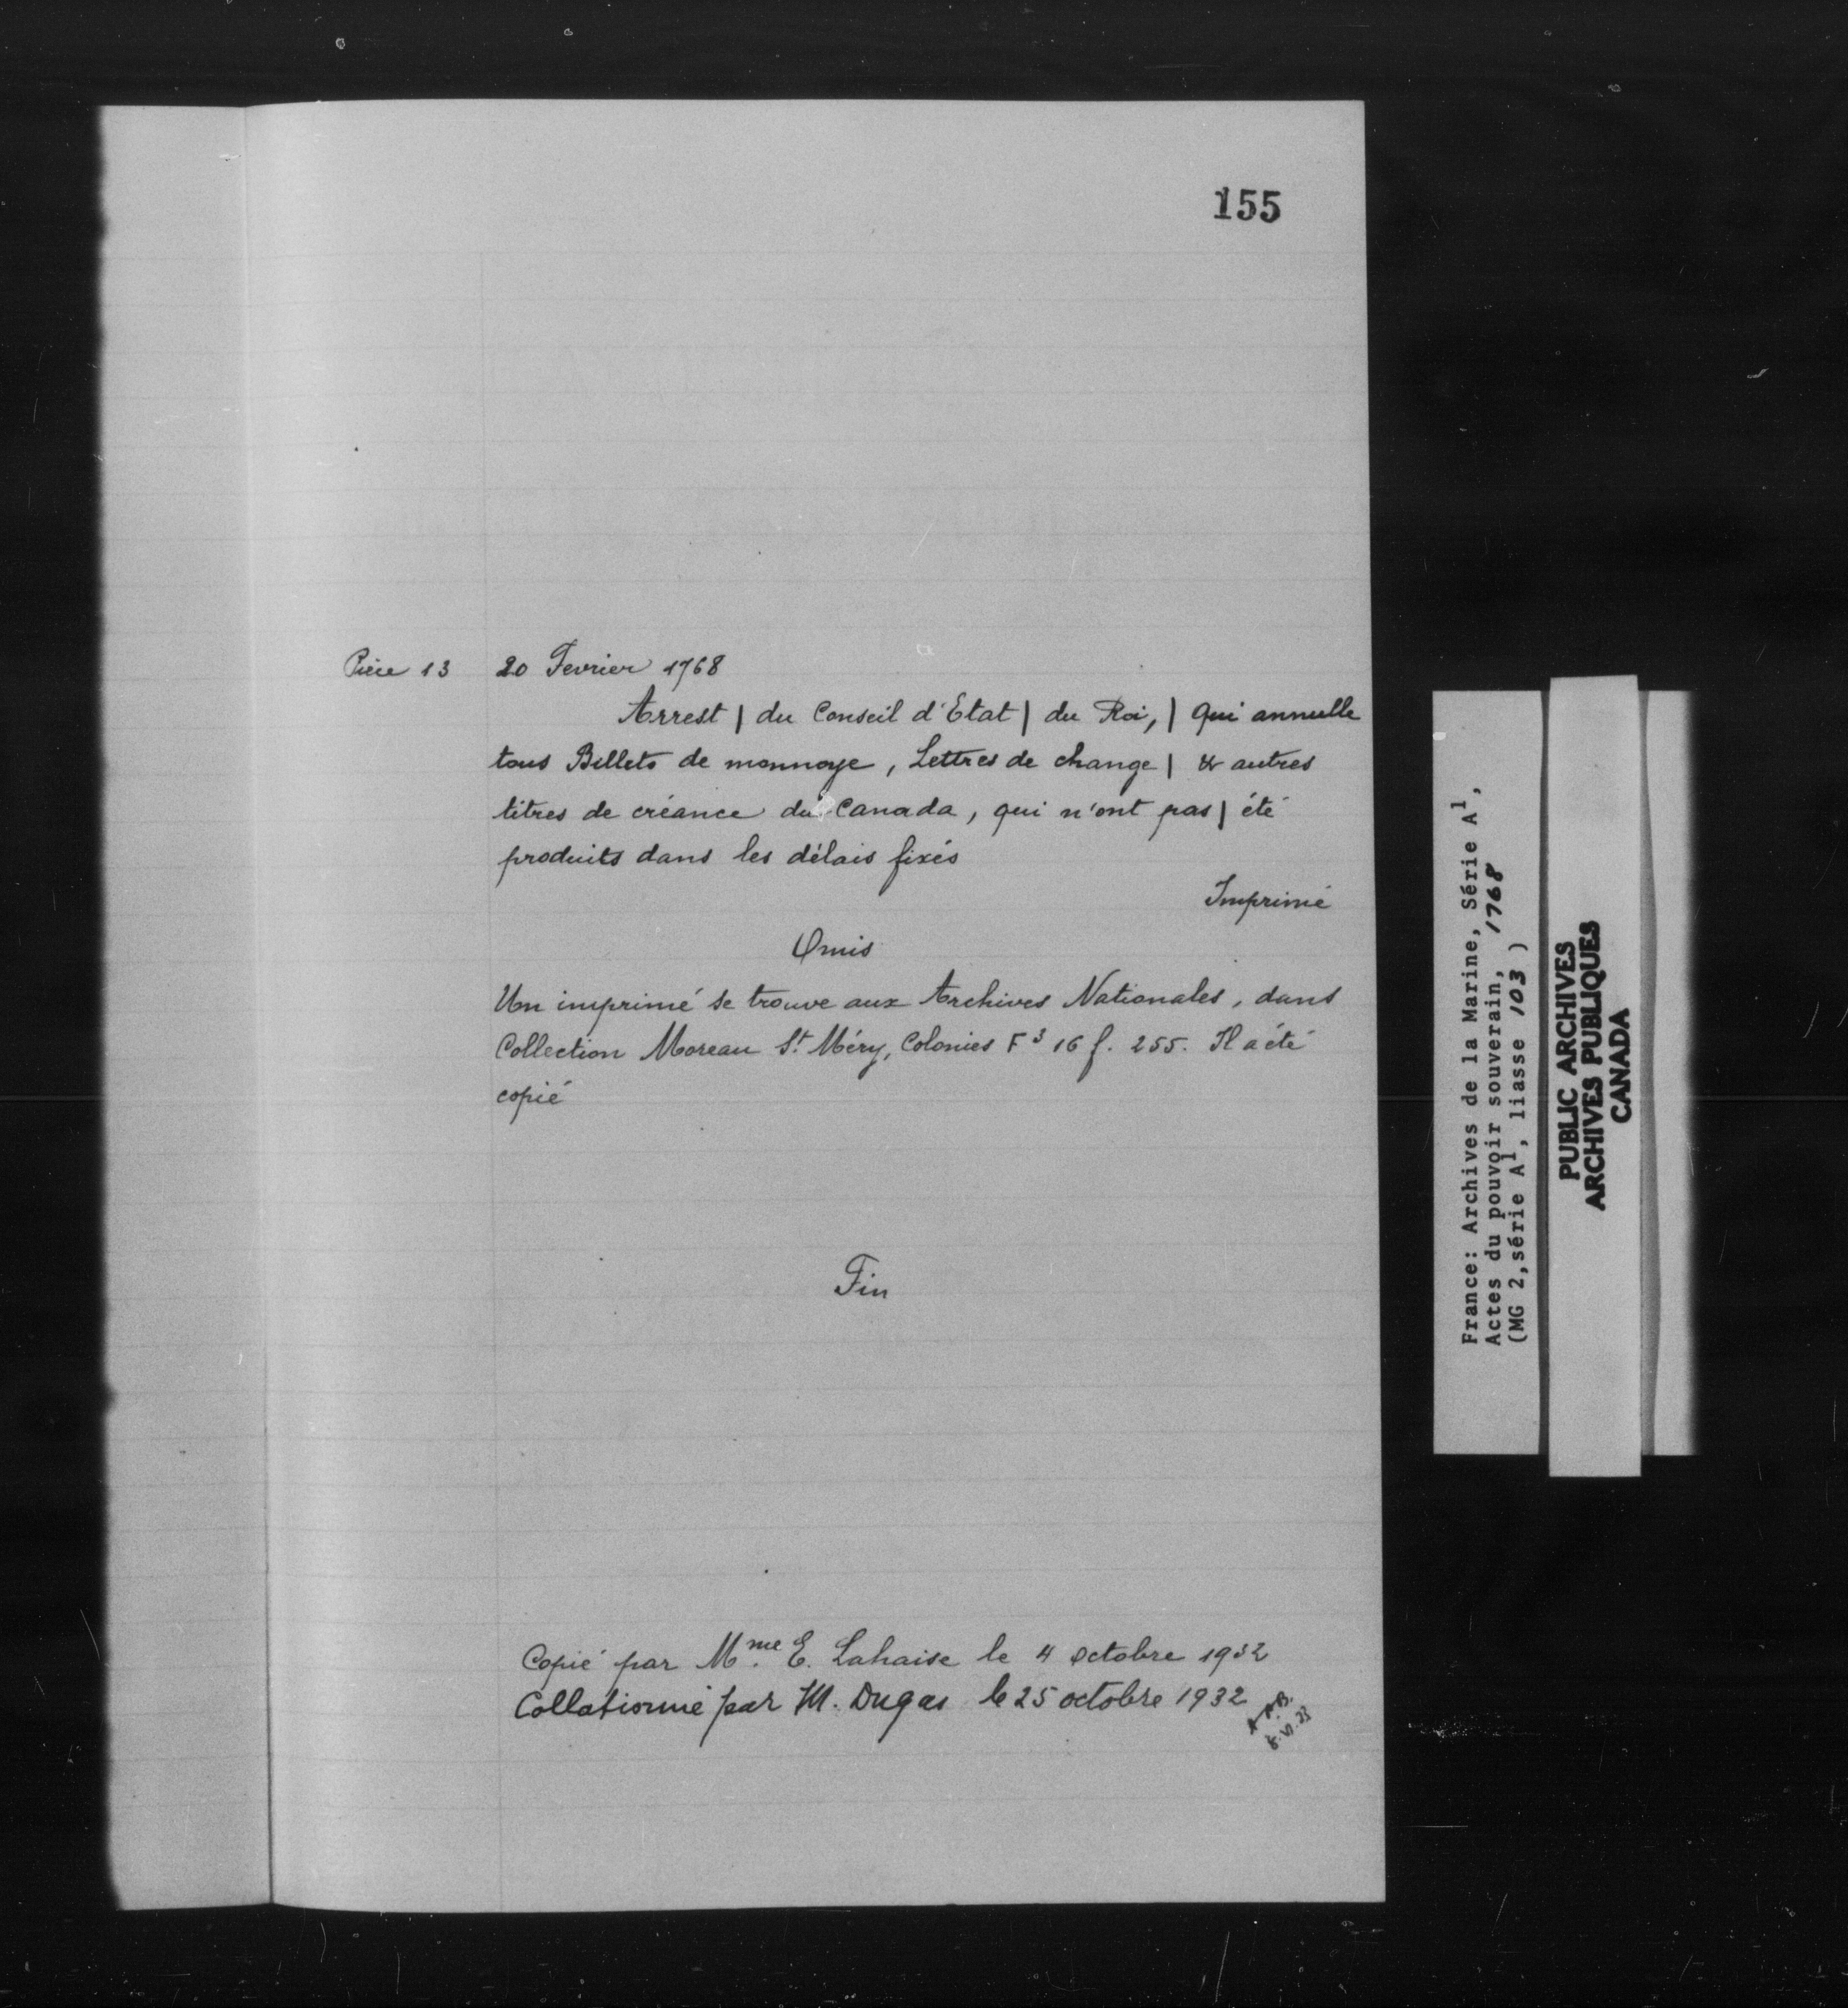 155
Pièce 13 20 Fevrier 1768
Arrest | du Conseil d'Etat | du Roi, | Qui annulle
tous Billets de monnoye, Lettres de change | & autres
titres de créance du Canada, qui n'ont pas | été
produits dans les délais fixés
Imprimé
Omis
Un imprimé se trouve aux Archives Nationales, dans
Collection Moreau St. Méry, Colonies F3 16 f. 255. Il a été
copié
Fin
Copié par Mme. E. Lahaise le 4 octobre 1932
Collationné par M. Dugas le 25 octobre 1932
France: Archives de la Marine, Série A1,
Actes du pouvoir souverain, 1768
(MG 2, série A1, liasse 103)
PUBLIC ARCHIVES
ARCHIVES PUBLIQUES
CANADA